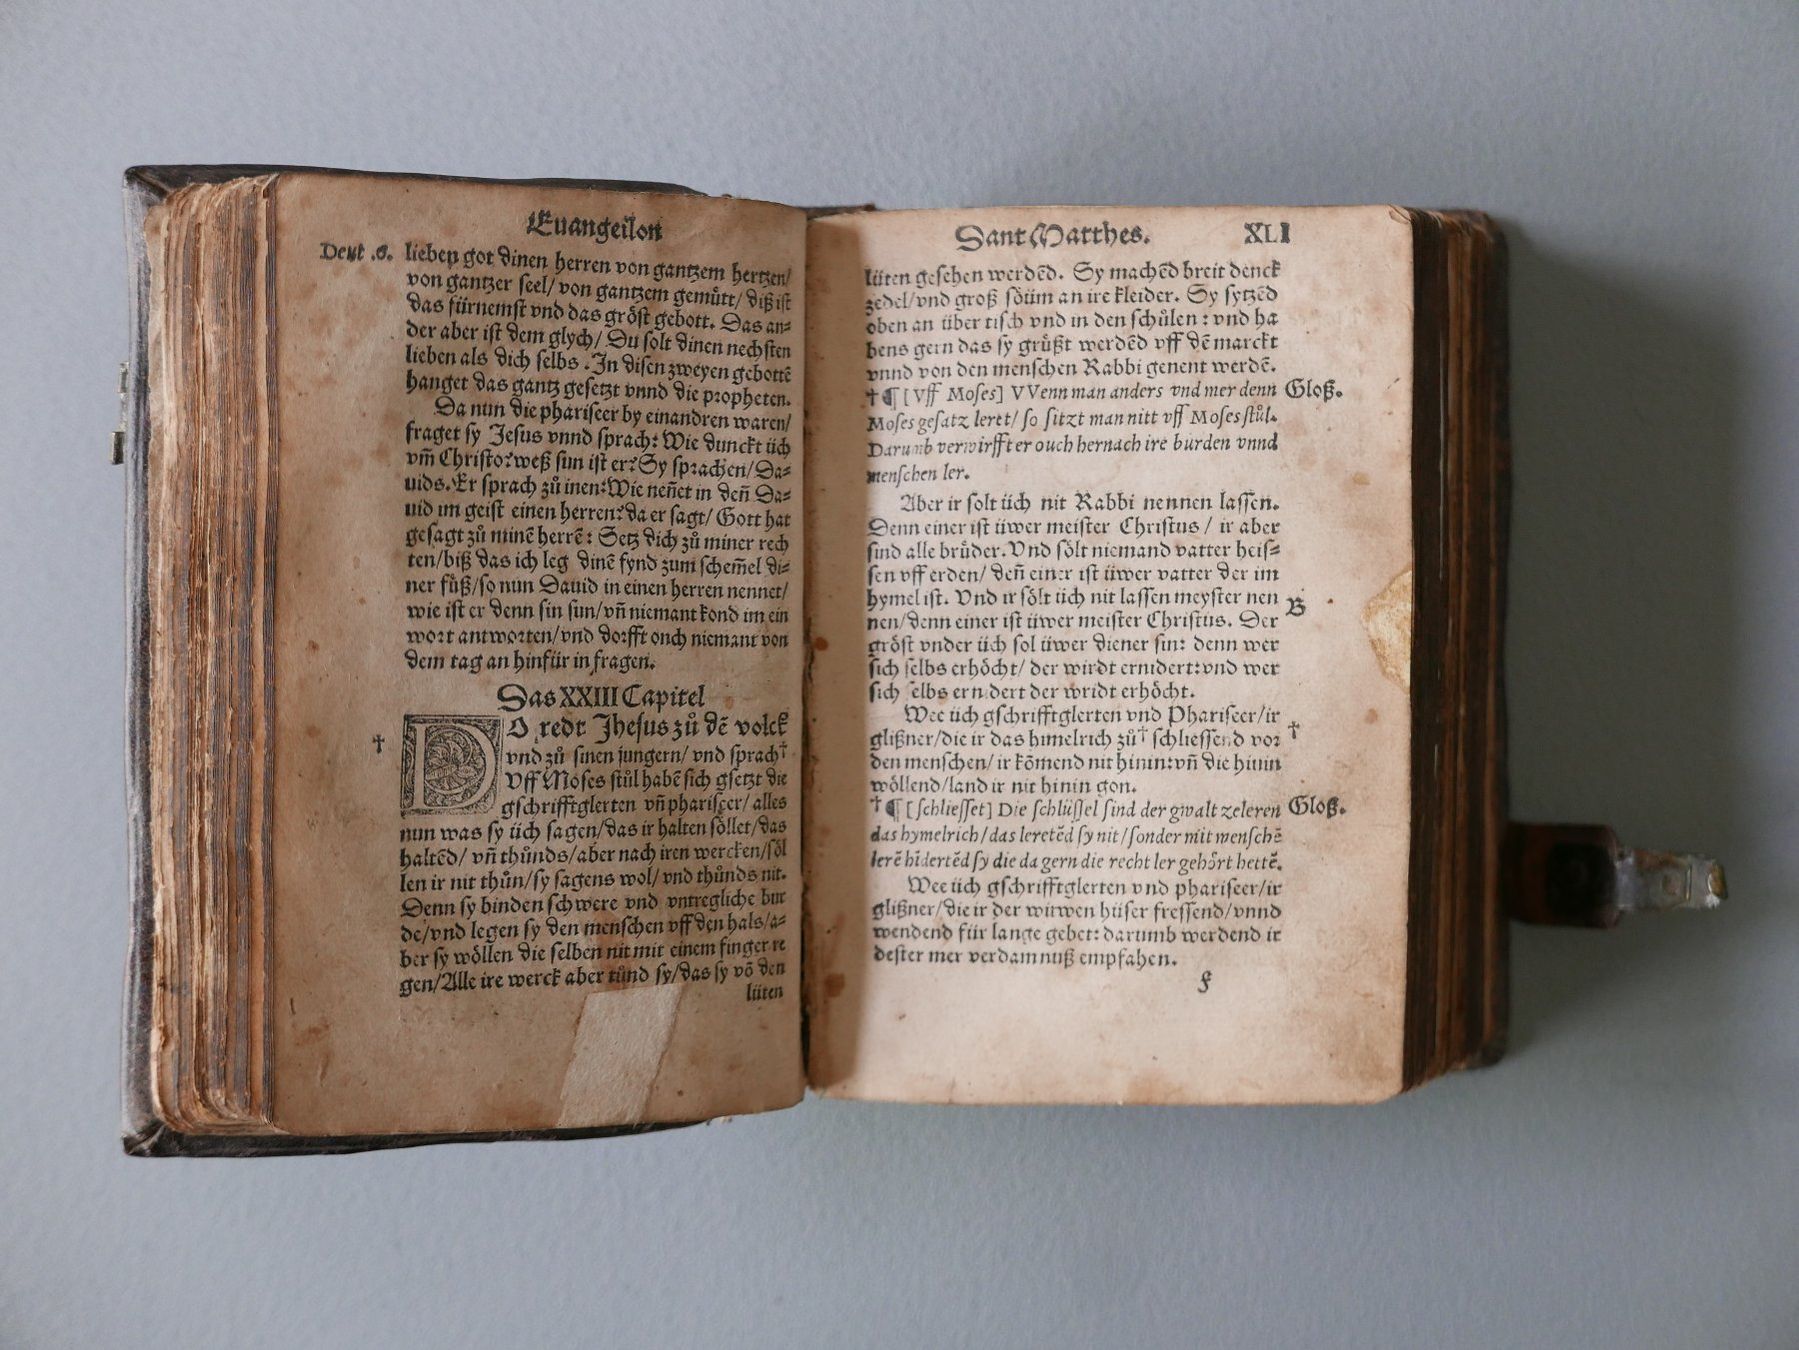 Euangeilon
Deut .6. lieben got dinen herren von gantzem hertzen/
von gantzer seel/ von gantzem gemuͤtt/ diß ist
das fürnemst vnd das gröst gebott. Das an⸗
der aber ist dem glych/ Du solt dinen nechsten
lieben als dich selbs .In disen zweyen gebottē
hanget das gantz gesetzt vnnd die propheten.
Da nun die phariseer by einandren waren/
fraget sy Jesus vnnd sprach: Wie dunckt üch
vm̄ Christo? weß sun ist er? Sy sprachen/ Da⸗
uids. Er sprach zuͦ inen: Wie nen̄et in den̄ Da⸗
uid im geist einen herren? da er sagt/ Gott hat
gesagt zuͦ minē herrē: Setz dich zuͦ miner rech
ten/ biß das ich leg dinē fynd zum schem̄el di⸗
ner fuͤß/ so nun Dauid in einen herren nennet/
wie ist er denn sin sun/ vn̄ niemant kond im ein
wort antworten/ vnd dorfft onch niemant von
dem tag an hinfür in fragen.
Das XXIII Capitel
† DO redt Jhesus zuͦ dē volck
vnd zuͦ sinen jungern/ vnd sprach†
Vff Moses stuͦl habē sich gsetzt die
gschrifftglerten vn̄ phariseer/ alles
nun was sy üch sagen/ das ir halten söllet/ das
haltēd/ vn̄ thuͦnds/ aber nach iren wercken/ söl
len ir nit thuͦn/ sy sagens wol/ vnd thuͦnds nit.
Denn sy binden schwere vnd vntregliche bur
de/ vnd legen sy den menschen vff den hals/ a⸗
ber sy wöllen die selben nit mit einem finger re
gen/ Alle ire werck aber tuͦnd sy/ das sy vō den
lüten
Sant Matthes. XLI
lüten gesehen werdēd. Sy machēd breit denck
zedel/ vnd groß söüm an ire kleider. Sy sytzēd
oben an über tisch vnd in den schuͦlen: vnd ha
bens gern das sy gruͤßt werdēd vff dē marckt
vnnd von den menschen Rabbi genent werdē.
†¶ [Vff Moses] VVenn man anders vnd mer denn Gloß.
Moses gesatz leret/ so sitzt man nitt vff Moses stuͦl.
Darumb verwirfft er ouch hernach ire burden vnnd
menschen ler.
Aber ir solt üch nit Rabbi nennen lassen.
Denn einer ist üwer meister Christus/ ir aber
sind alle bruͤder. Vnd sölt niemand vatter heis⸗
sen vff erden/ den̄ einer ist üwer vatter der im
hymel ist. Vnd ir sölt üch nit lassen meyster nen B
nen/ denn einer ist üwer meister Christus. Der
gröst vnder üch sol üwer diener sin: denn wer
sich selbs erhöcht/ der wirdt ernidert: vnd wer
sich selbs ernidert der wridt erhöcht.
Wee üch gschrifftglerten vnd Phariseer/ ir
glißner/ die ir das himelrich zuͦ† schliessend vor †
den menschen/ ir kōmend nit hinin: vn̄ die hinin
wöllend/ land ir nit hinin gon.
†¶ [schliesset] Die schlüssel sind der gwalt zeleren Gloß.
das hymelrich/ das leretēd sy nit/ sonder mit menschē
lerē hīdertēd sy die da gern die recht ler gehört hettē.
Wee üch gschrifftglerten vnd phariseer/ ir
glißner/ die ir der witwen hüser fressend/ vnnd
wendend für lange gebet: darumb werdend ir
dester mer verdamnuß empfahen.
f